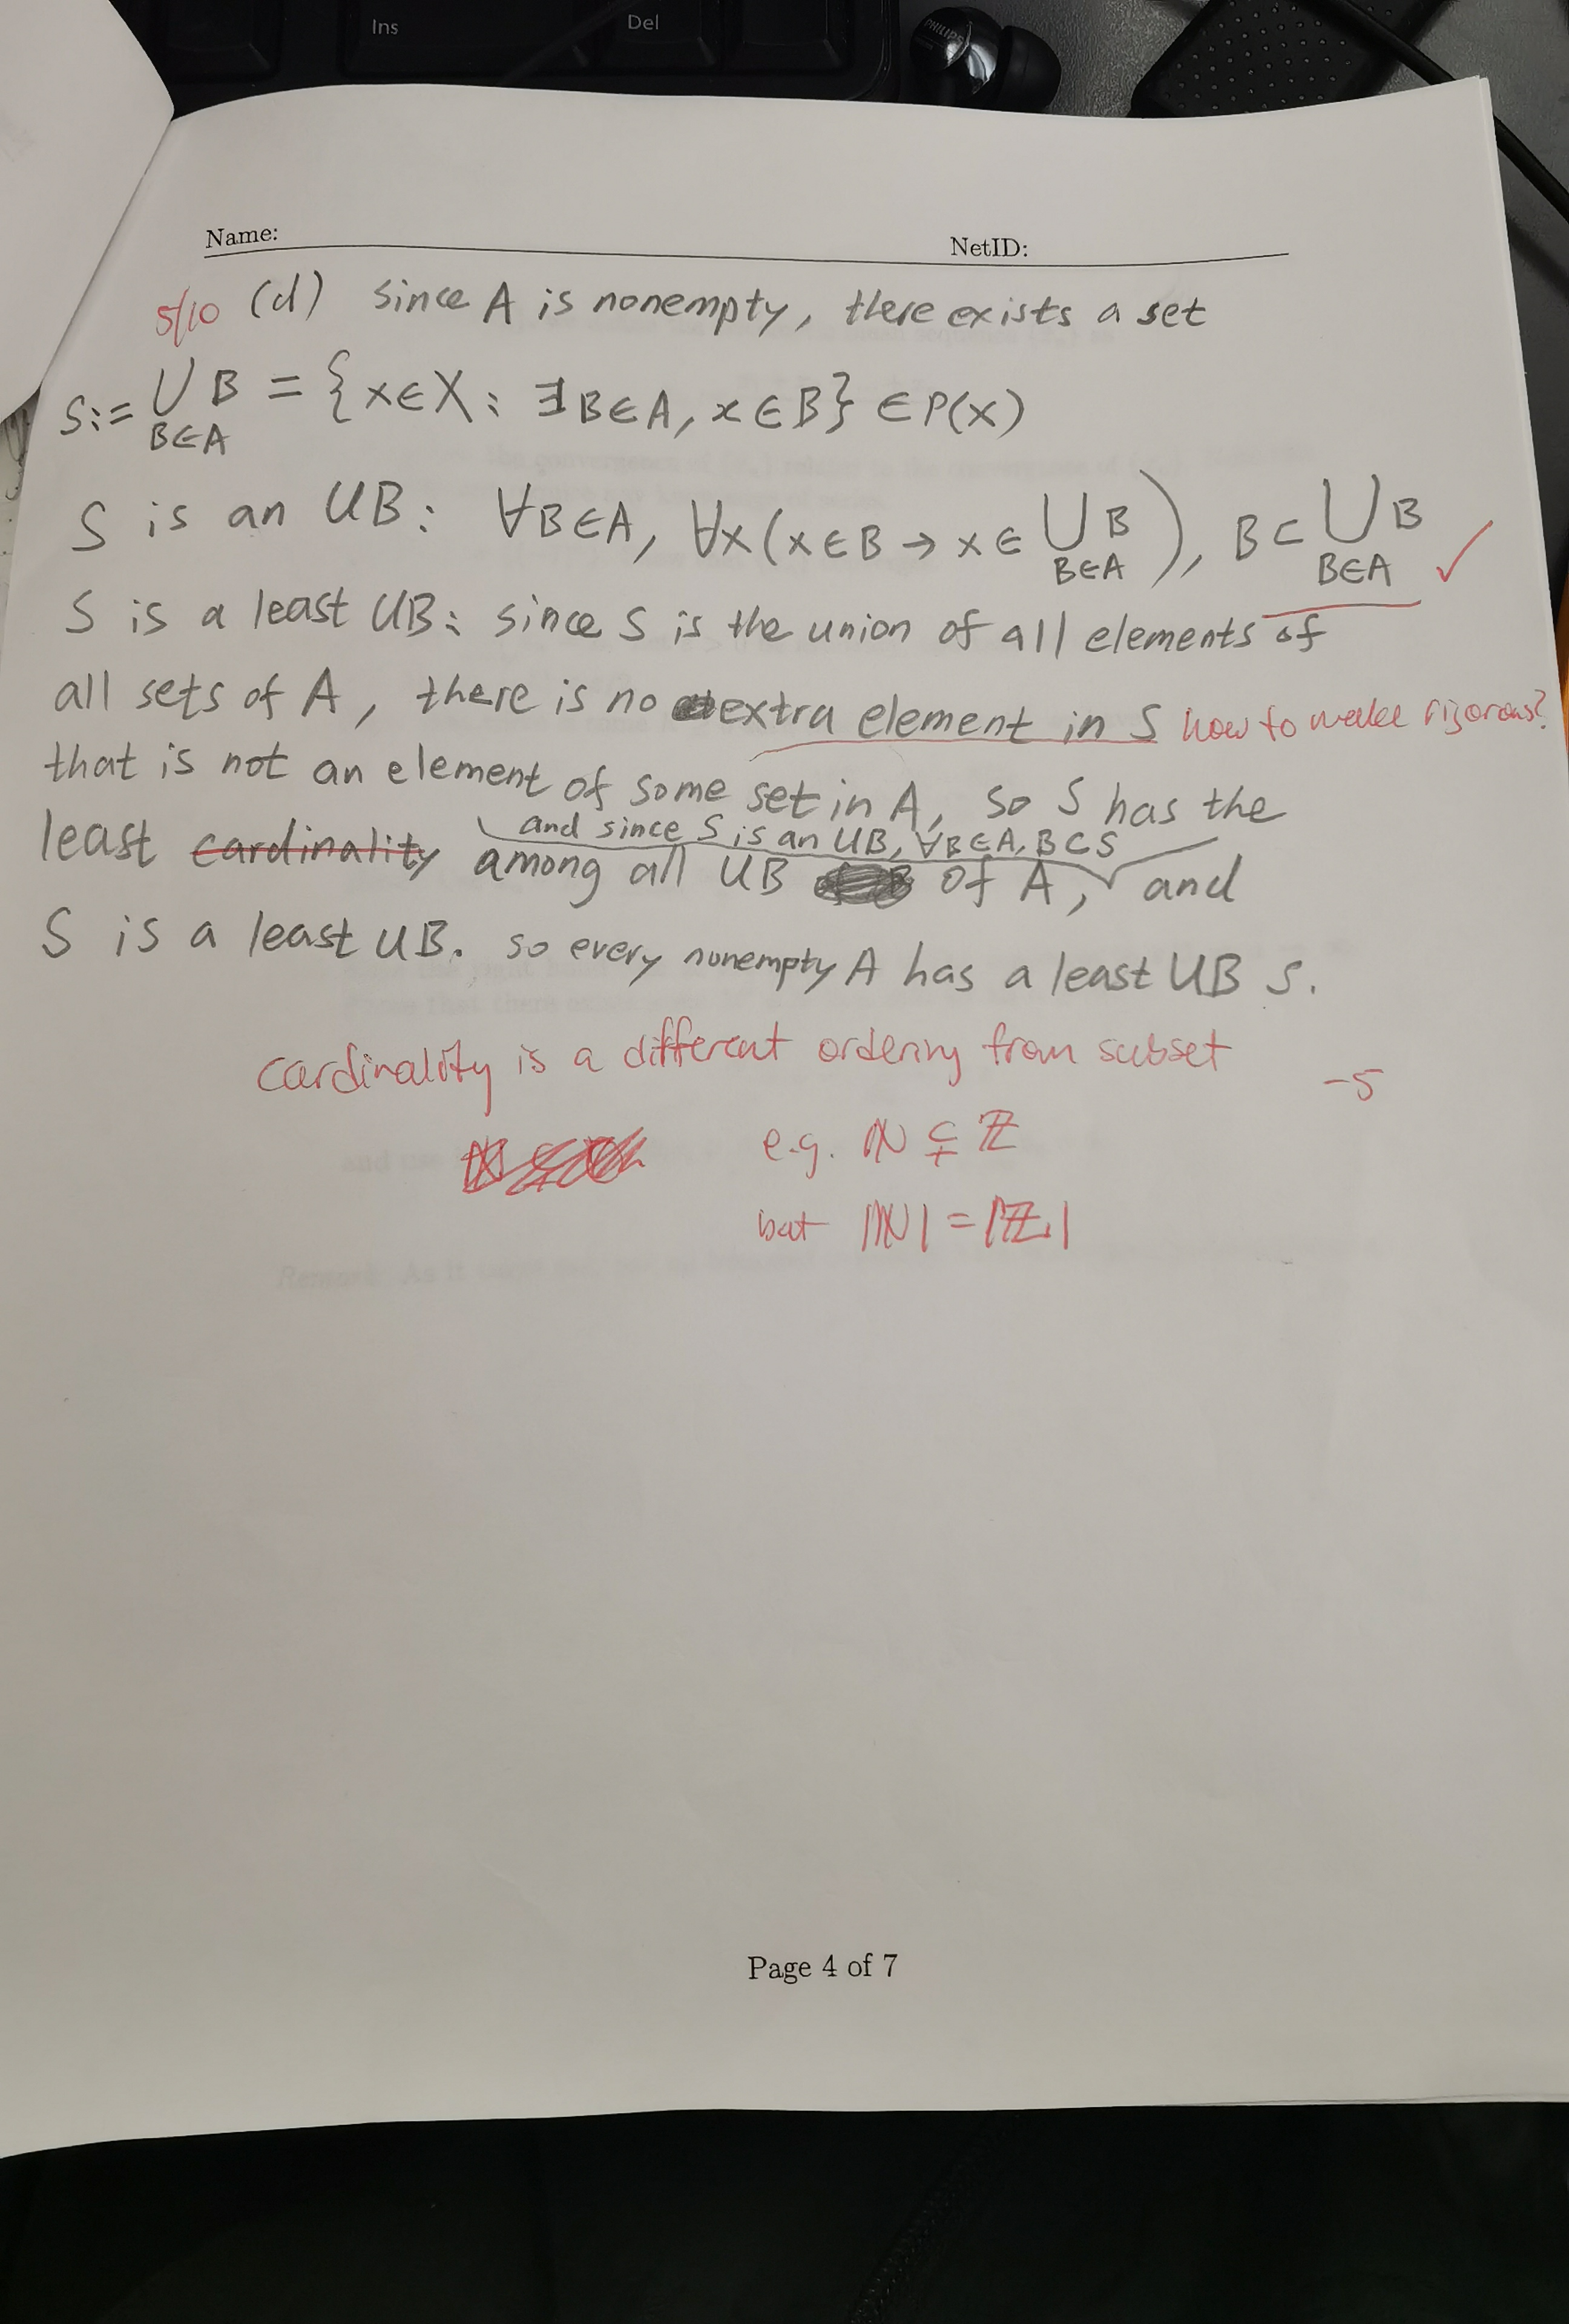 Ins Del
PHILIPS
Name: NetID:
5/10 (d) since A is nonempty, there exists a set
S:= ⋃_{B∈A} B = {x∈X: ∃B∈A, x∈B} ∈P(X)
S is an UB: ∀B∈A, ∀x(x∈B → x∈ ⋃_{B∈A} B), B⊂ ⋃_{B∈A} B ✓
S is a least UB: since S is the union of all elements of
all sets of A, there is no extra element in S how to make rigorous?
that is not an element of some set in A, so S has the
and since S is an UB, ∀B∈A, B⊂S
least cardinality among all UB of A, and
S is a least UB. so every nonempty A has a least UB S.
cardinality is a different ordering from subset -5
e.g. ℕ ⊊ ℤ
but |ℕ| = |ℤ|
Page 4 of 7